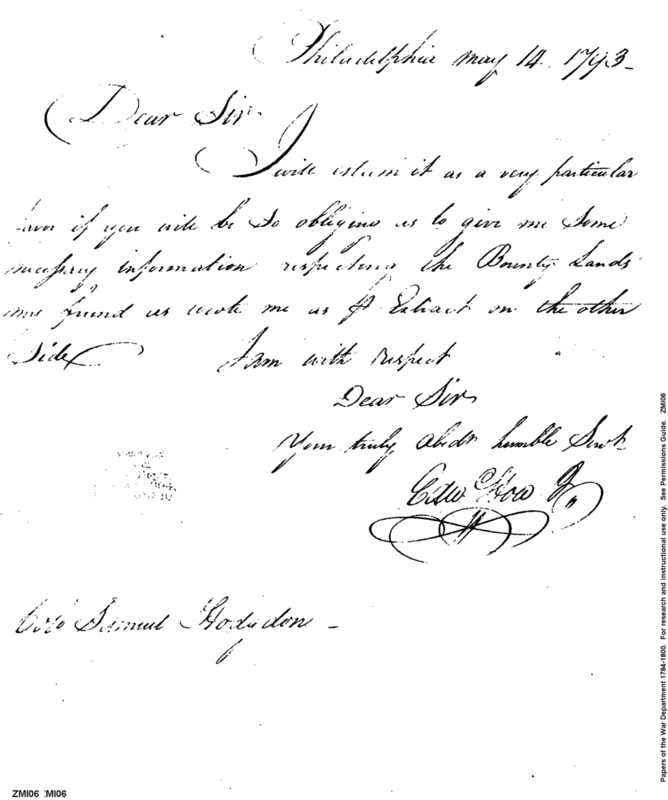 Philadelphia May 14 1793-
Dear Sir
I will esteem it as a very particular
favor if you will be so obliging as to give me Some
necessary information respecting the Bounty Lands
friend as wrote me as P Extract on the other
Side I am with respect
Dear Sir
Your truly Obedt humble Servt
How Jr
Colo Samuel Hodgdon -
Papers of the War Department 1784-1800. For research and instructional use only. See Permissions Guide. ZMI06
ZMI06 ZMI06